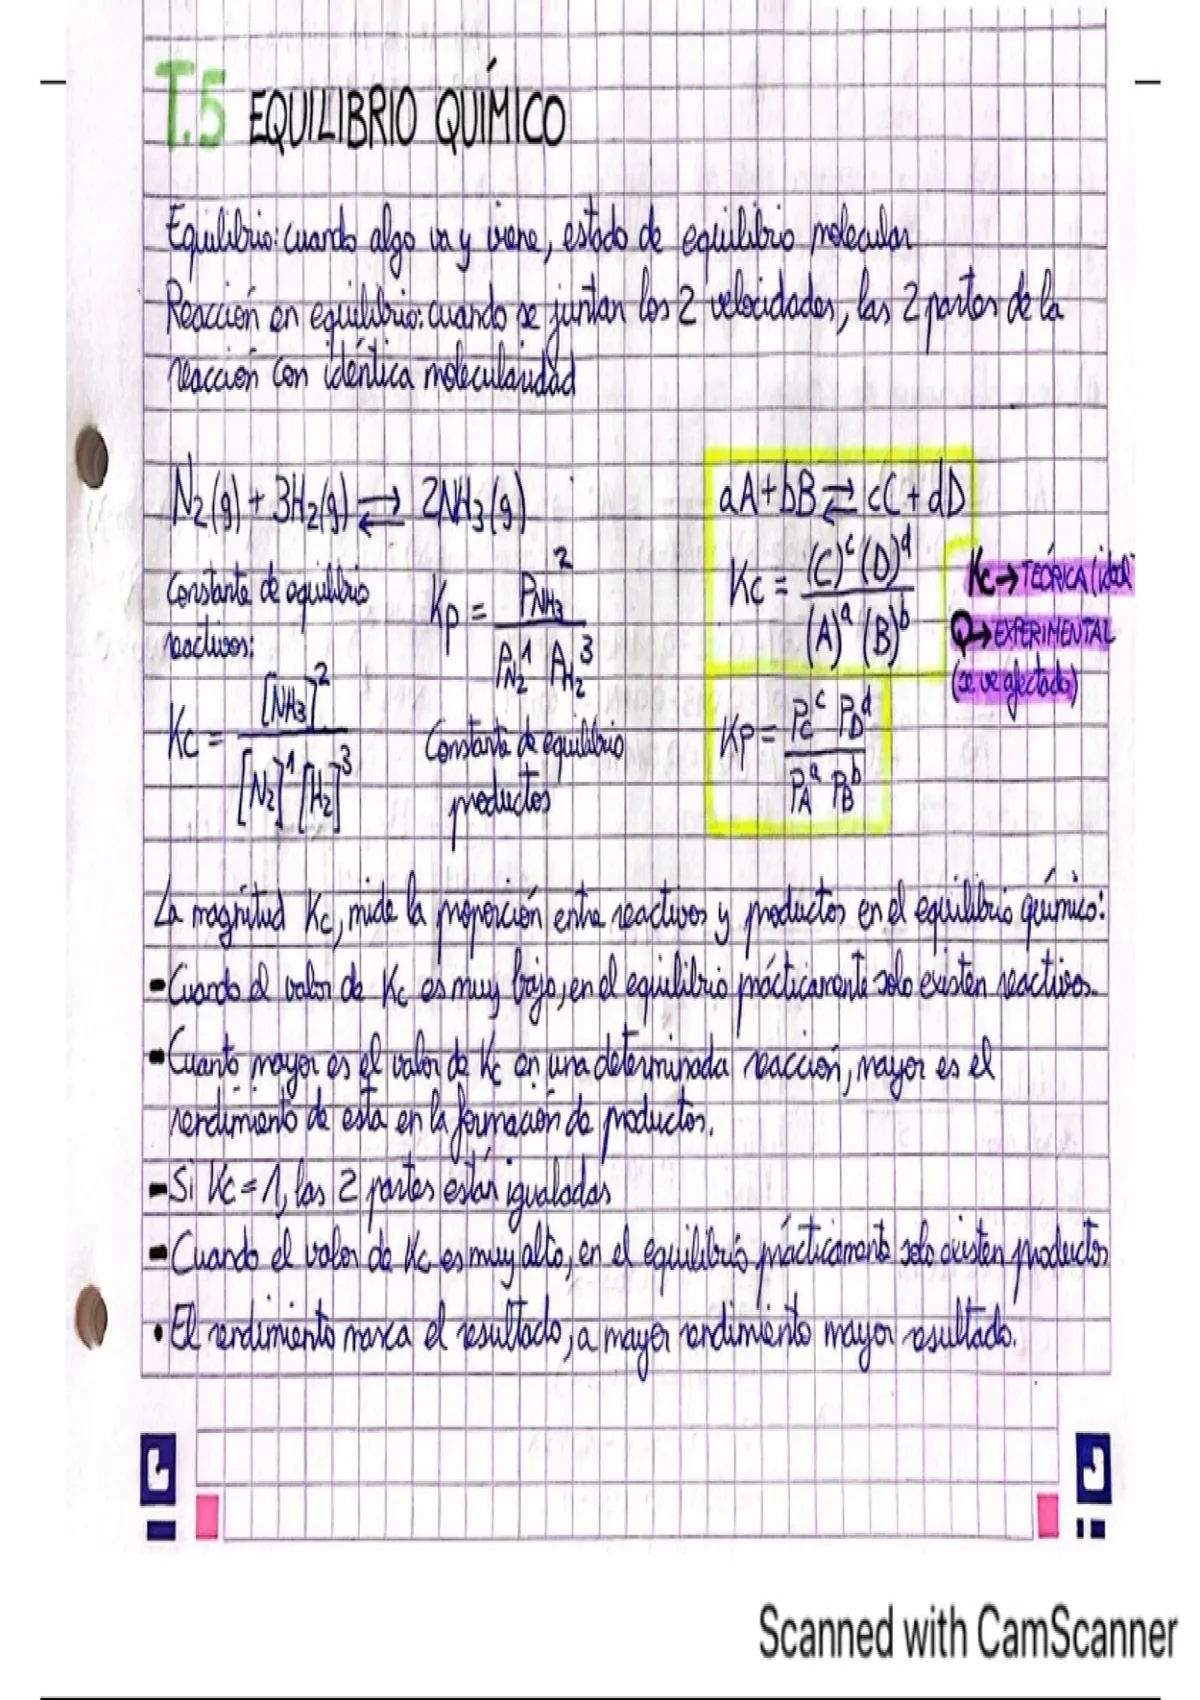 T.5 EQUILIBRIO QUÍMICO
Equilibrio: cuando algo va y viene, estado de equilibrio molecular
Reacción en equilibrio: cuando se juntan los 2 velocidades, las 2 partes de la
reacción con idéntica molecularidad
N₂(g) + 3H₂(g) ⇄ 2NH₃(g)
Constante de equilibrio
reactivos:
Kc = [NH₃]² / [N₂]¹ [H₂]³
Kp = P_NH₃² / P_N₂¹ P_H₂³
Constante de equilibrio
productos
aA + bB ⇄ cC + dD
Kc = (C)^c (D)^d / (A)^a (B)^b
Kp = P_C^c P_D^d / P_A^a P_B^b
Kc → TEÓRICA (ideal
Q → EXPERIMENTAL
(se ve afectado)
La magnitud Kc, mide la proporción entre reactivos y productos en el equilibrio químico:
- Cuando el valor de Kc es muy bajo, en el equilibrio prácticamente solo existen reactivos.
- Cuanto mayor es el valor de Kc en una determinada reacción, mayor es el
rendimiento de esta en la formación de productos.
- Si Kc = 1, las 2 partes están igualadas
- Cuando el valor de Kc es muy alto, en el equilibrio prácticamente solo existen productos
• El rendimiento marca el resultado, a mayor rendimiento mayor resultado.
Scanned with CamScanner